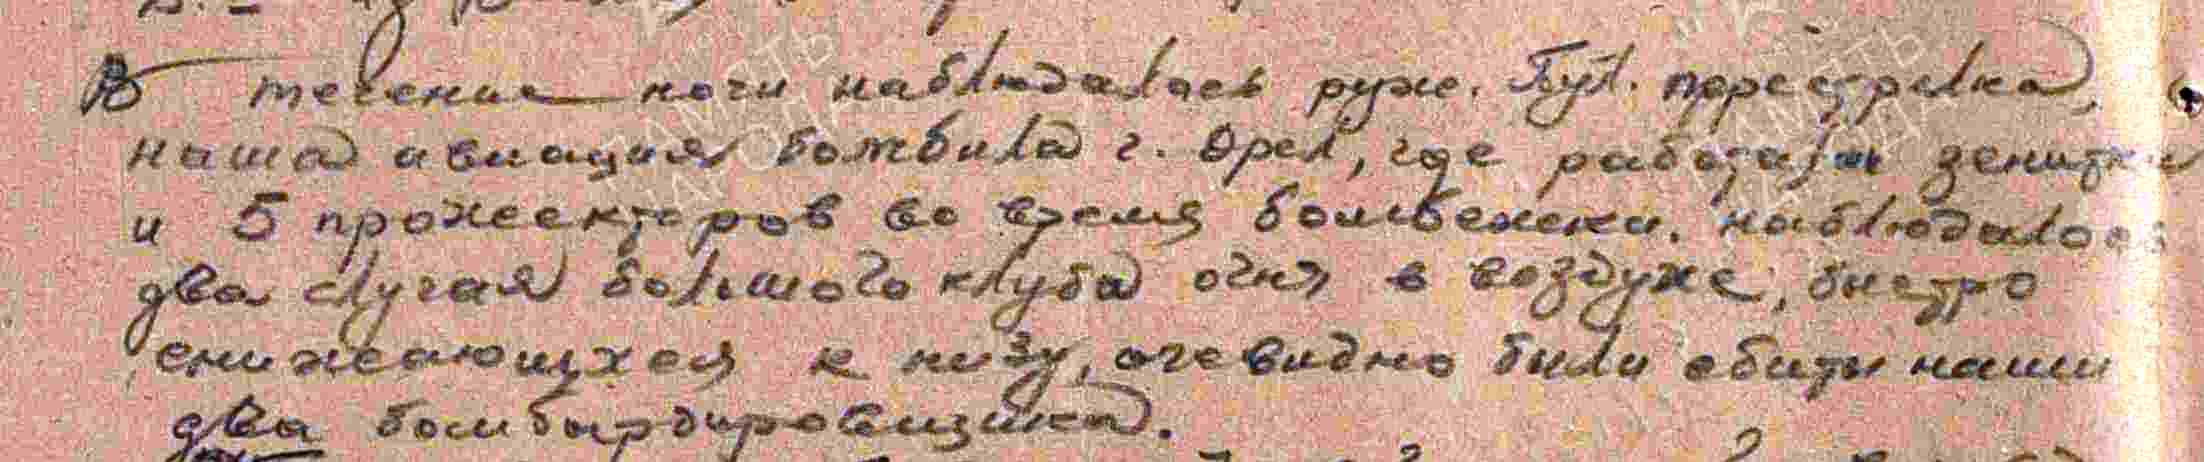 В течение ночи наблюдалась руж. Пул. перестрелка,
наша авиация бомбила г. Орел, где работали зенитки
и 5 прожекторов во время бомбежки. наблюдалось
два случая большого клуба огня в воздухе, быстро
снижающихся к низу, очевидно были сбиты наши
два бомбардировщика.